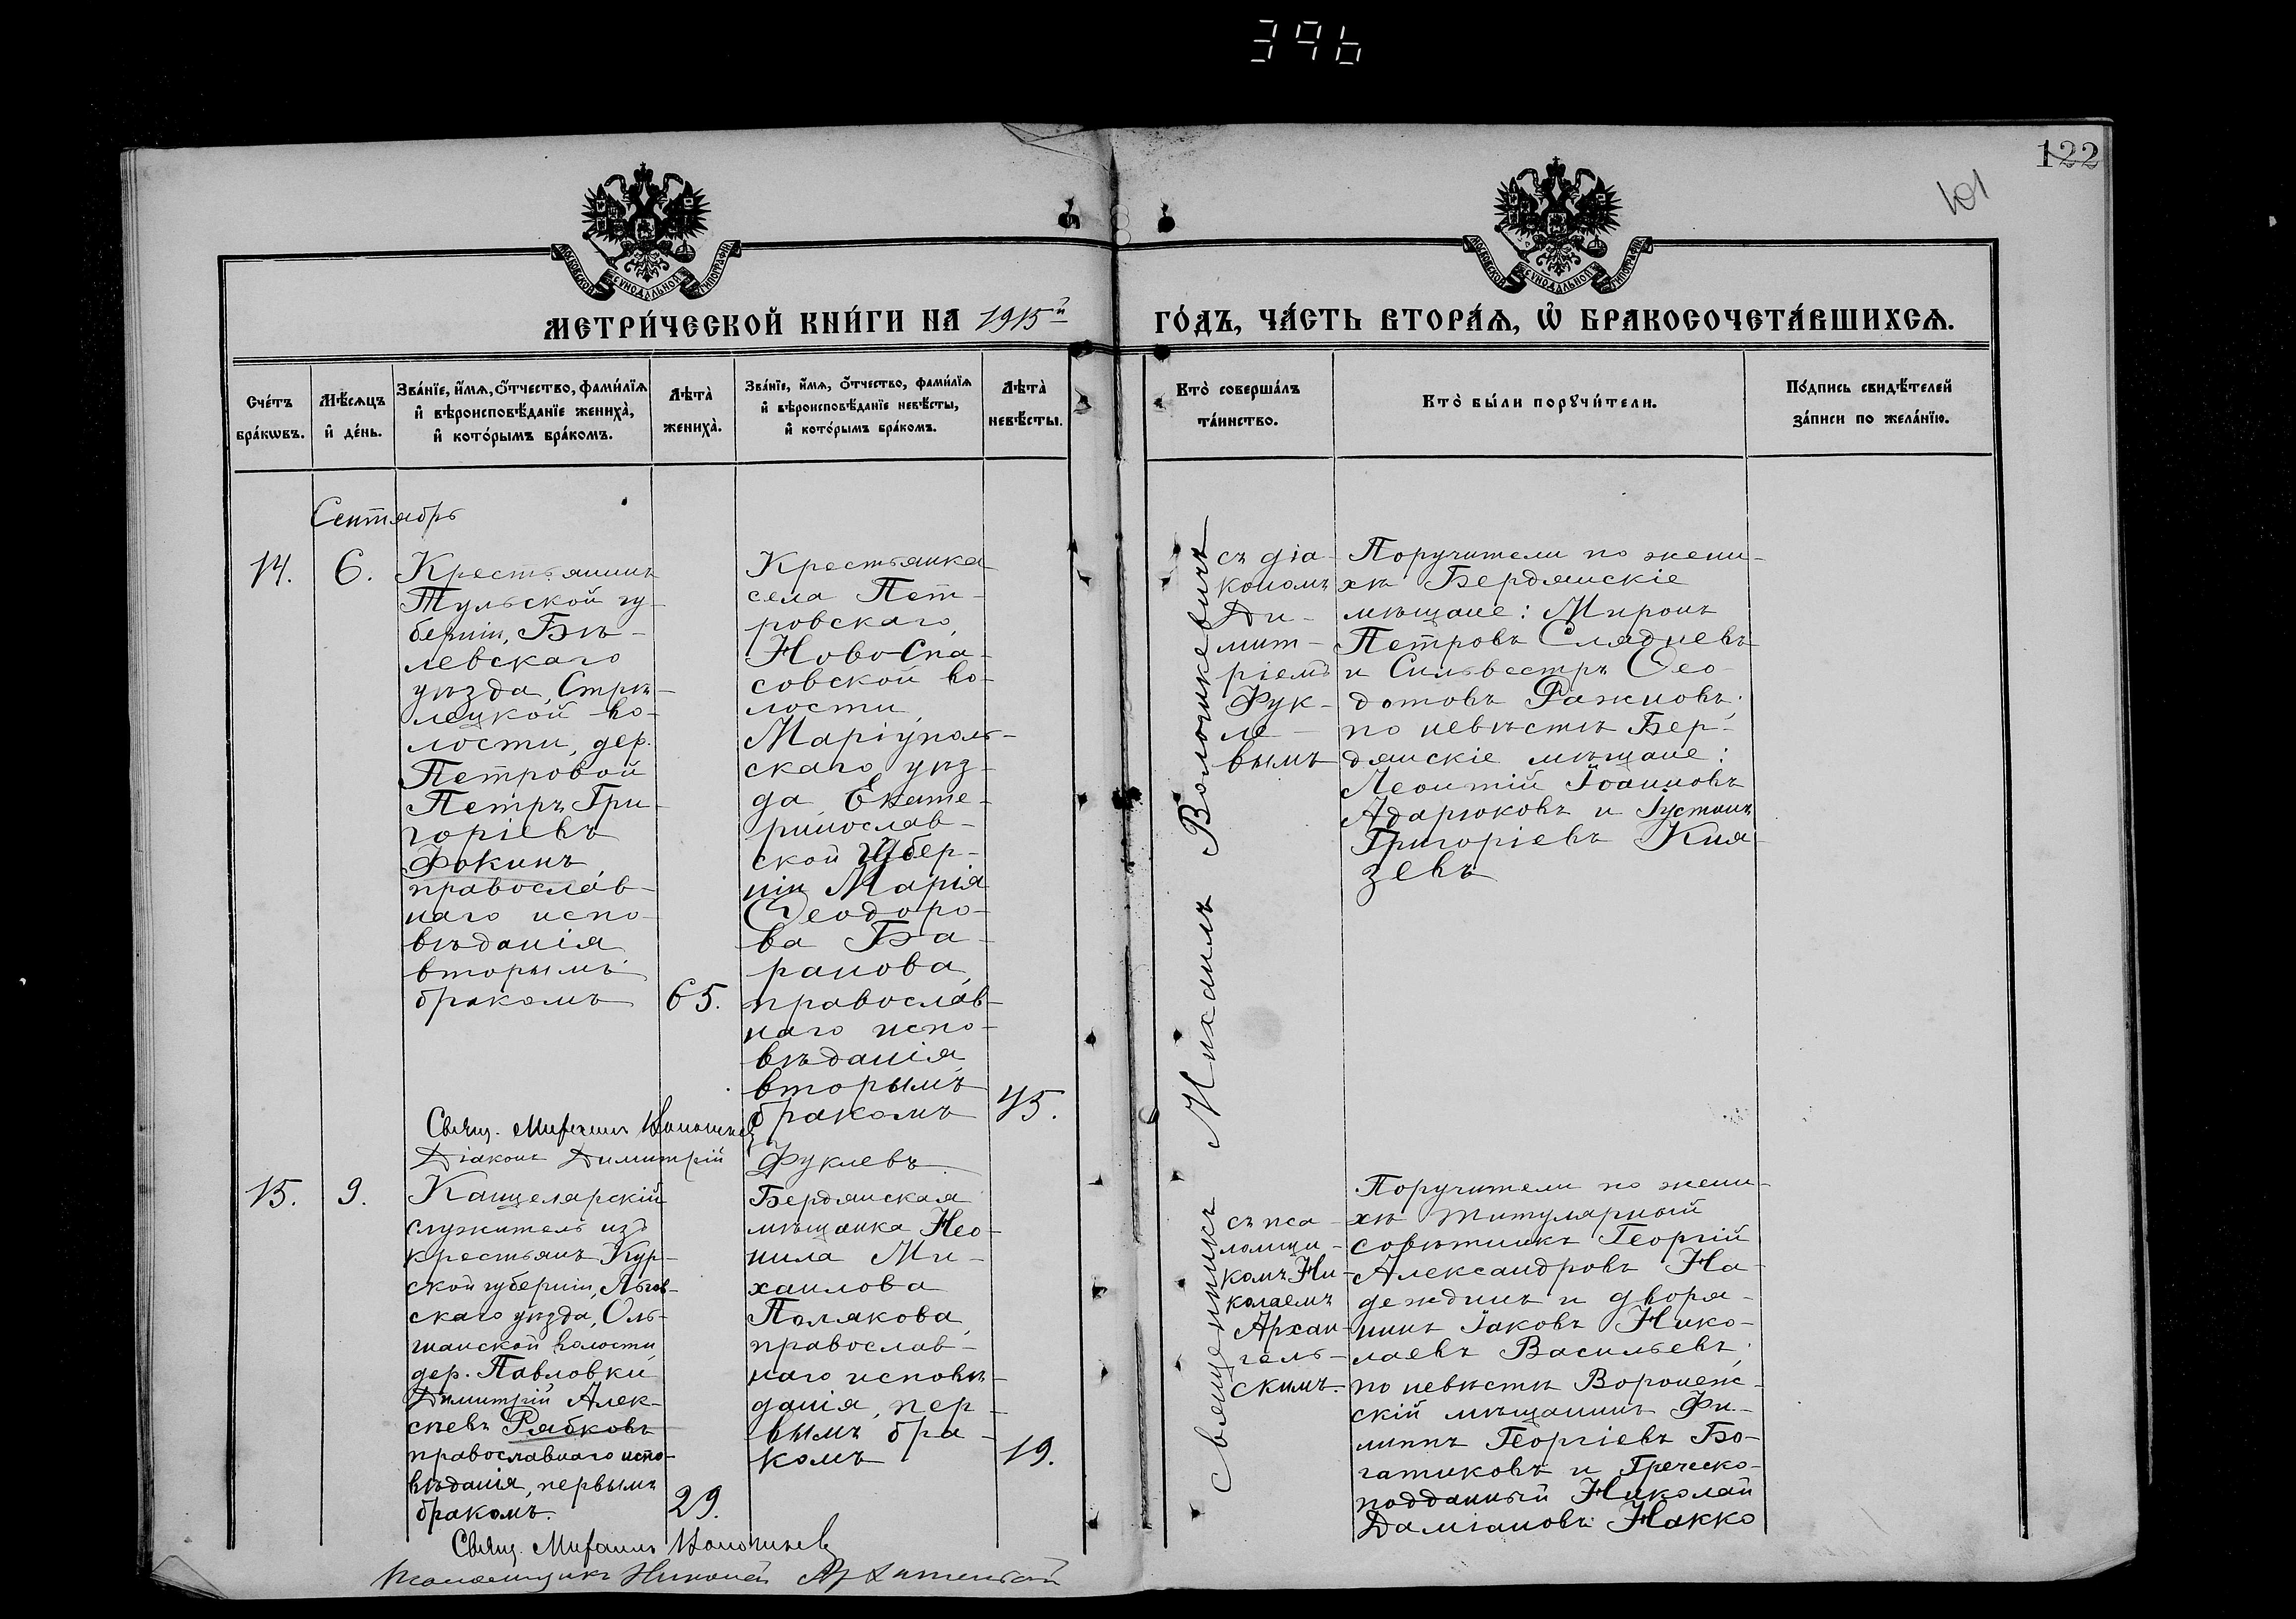 396
122
101
МОСКОВСКОЙ СѴНОДАЛЬНОЙ ТИПОГРАФІИ
МОСКОВСКОЙ СѴНОДАЛЬНОЙ ТИПОГРАФІИ
МЕТРИ́ЧЕСКОЙ КНИ́ГИ НА 1915й
ГО́ДЪ, ЧА́СТЬ ВТОРА́Ѧ, Ѡ҆ БРАКОСОЧЕТА́ВШИХСѦ.
Сче́тъ
бра́кѡвъ.
Мѣ́сѧцъ
и҆ де́нь.
Зва́нїе, и҆́мѧ, ѻ҆́тчество, фами́лїѧ
и҆ вѣроисповѣ́данїе жениха̀,
и҆ кото́рымъ бра́комъ.
Лѣта̀
жениха̀.
Зва́нїе, и҆́мѧ, ѻ҆́тчество, фами́лїѧ
и҆ вѣроисповѣ́данїе невѣ́сты,
и҆ кото́рымъ бра́комъ.
Лѣта̀
невѣ́сты.
Кто̀ соверша́лъ
та́инство.
Кто̀ бы́ли порꙋчи́тели.
По́дпись свидѣ́телей
за́писи по жела́нїю.
Сентябрь
14.
6.
Крестьянинъ
Тульской гу-
берніи, Бѣ-
левскаго
уѣзда, Стрѣ-
лецкой во-
лости, дер.
Петровой
Петръ Гри-
горіевъ
Фокинъ
православ-
наго испо-
вѣданія
вторымъ
бракомъ
65.
Крестьянка
села Пет-
ровскаго
Ново-Спа-
совской во-
лости,
Маріуполь-
скаго уѣз-
да Екате-
ринослав-
ской губер-
ніи Марія
Ѳеодоро-
ва Ба-
ранова,
православ-
наго испо-
вѣданія,
вторымъ
бракомъ
45.
Священникъ Михаилъ Волошкевичъ
съ діа-
кономъ
Ди-
мит-
ріемъ
Фук-
ле-
вымъ
Поручители по жени-
хѣ Бердянскіе
мѣщане: Миронъ
Петровъ Слядневъ
и Сильвестръ Ѳео-
дотовъ Ражновъ;
по невѣстѣ Бер-
дянскіе мѣщане:
Леонтій Іоанновъ
Адарюковъ и Іустинъ
Григоріевъ Кня-
зевъ
Свящ. Михаилъ Волошкев
Діаконъ Димитрій Фуклевъ
15.
9.
Канцелярскій
служитель изъ
крестьянъ Кур-
ской губерніи, Льгов-
скаго уѣзда, Оль-
шанской волости
дер. Павловки
Димитрій Алек-
сѣевъ Рябковъ
православнаго испо-
вѣданія, первымъ
бракомъ.
29.
Бердянская
мѣщанка Нео-
нила Ми-
хаилова
Полякова,
православ-
наго исповѣ-
данія, пер-
вымъ бра-
комъ
19.
съ пса-
ломщи-
комъ Ни-
колаемъ
Архан-
гель-
скимъ.
Поручители по жени-
хѣ титулярный
совѣтникъ Георгій
Александровъ На-
деждинъ и дворя-
нинъ Іаковъ Нико-
лаевъ Васильевъ;
по невѣстѣ Воронеж-
скій мѣщанинъ Фи-
липпъ Георгіевъ Бо-
гатиковъ и Греческо-
подданный Николай
Даміановъ Накко
Свящ. Михаилъ Волошкев
Псаломщикъ Николай Архангельскій